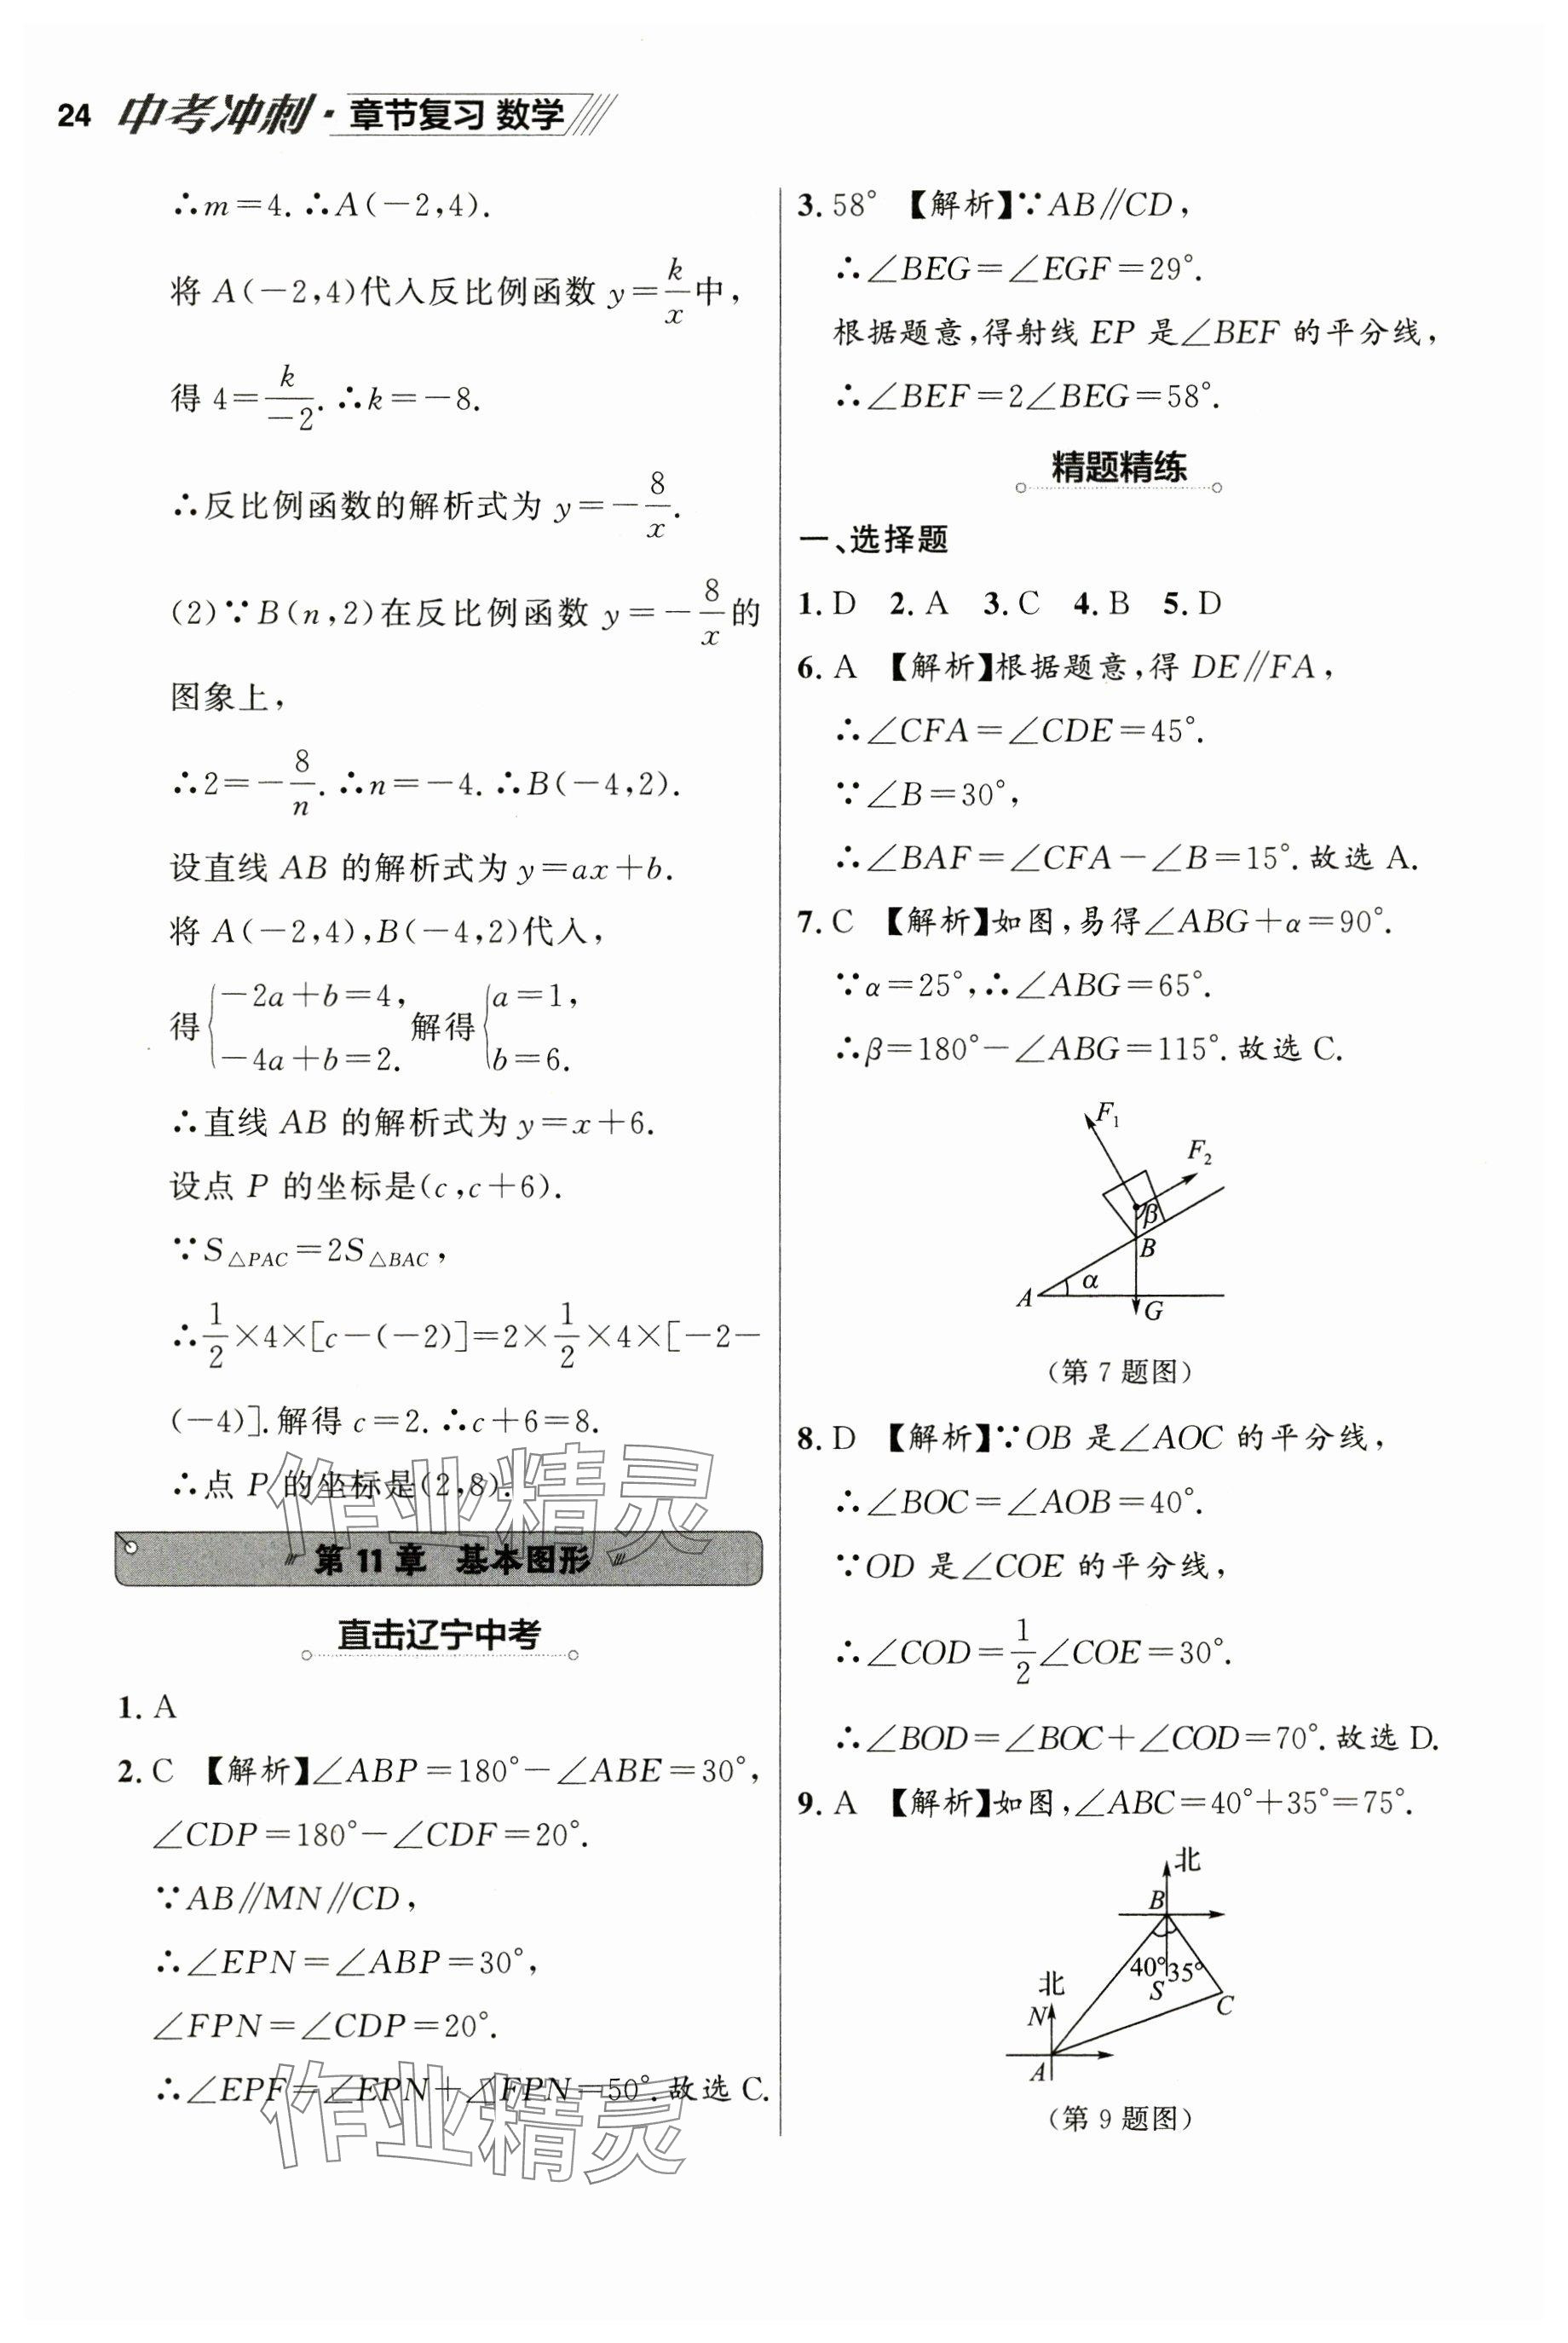 24 中考冲刺·章节复习 数学
∴m=4. ∴A(-2,4).
将 A(-2,4)代入反比例函数 y=k/x中,
得 4=k/-2. ∴k=-8.
∴反比例函数的解析式为 y=-8/x.
(2)∵B(n,2)在反比例函数 y=-8/x的
图象上,
∴2=-8/n. ∴n=-4. ∴B(-4,2).
设直线 AB 的解析式为 y=ax+b.
将 A(-2,4),B(-4,2)代入,
得{-2a+b=4, -4a+b=2. 解得{a=1, b=6.
∴直线 AB 的解析式为 y=x+6.
设点 P 的坐标是(c,c+6).
∵S△PAC=2S△BAC,
∴1/2×4×[c-(-2)]=2×1/2×4×[-2-
(-4)].解得 c=2. ∴c+6=8.
∴点 P 的坐标是(2,8).
第 11 章 基本图形
直击辽宁中考
1. A
2. C 【解析】∠ABP=180°-∠ABE=30°,
∠CDP=180°-∠CDF=20°.
∵AB∥MN∥CD,
∴∠EPN=∠ABP=30°,
∠FPN=∠CDP=20°.
∴∠EPF=∠EPN+∠FPN=50°.故选 C.
3. 58° 【解析】∵AB∥CD,
∴∠BEG=∠EGF=29°.
根据题意,得射线 EP 是∠BEF 的平分线,
∴∠BEF=2∠BEG=58°.
精题精练
一、选择题
1. D 2. A 3. C 4. B 5. D
6. A 【解析】根据题意,得 DE∥FA,
∴∠CFA=∠CDE=45°.
∵∠B=30°,
∴∠BAF=∠CFA-∠B=15°.故选 A.
7. C 【解析】如图,易得∠ABG+α=90°.
∵α=25°,∴∠ABG=65°.
∴β=180°-∠ABG=115°.故选 C.
F₁
F₂
β
B
α
A
G
(第 7 题图)
8. D 【解析】∵OB 是∠AOC 的平分线,
∴∠BOC=∠AOB=40°.
∵OD 是∠COE 的平分线,
∴∠COD=1/2∠COE=30°.
∴∠BOD=∠BOC+∠COD=70°.故选 D.
9. A 【解析】如图,∠ABC=40°+35°=75°.
北
B
40° 35°
北
S
N
C
A
(第 9 题图)
作业精灵
作业精灵